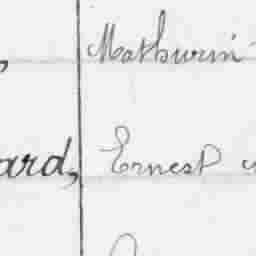 Mathurin
ard, Ernest